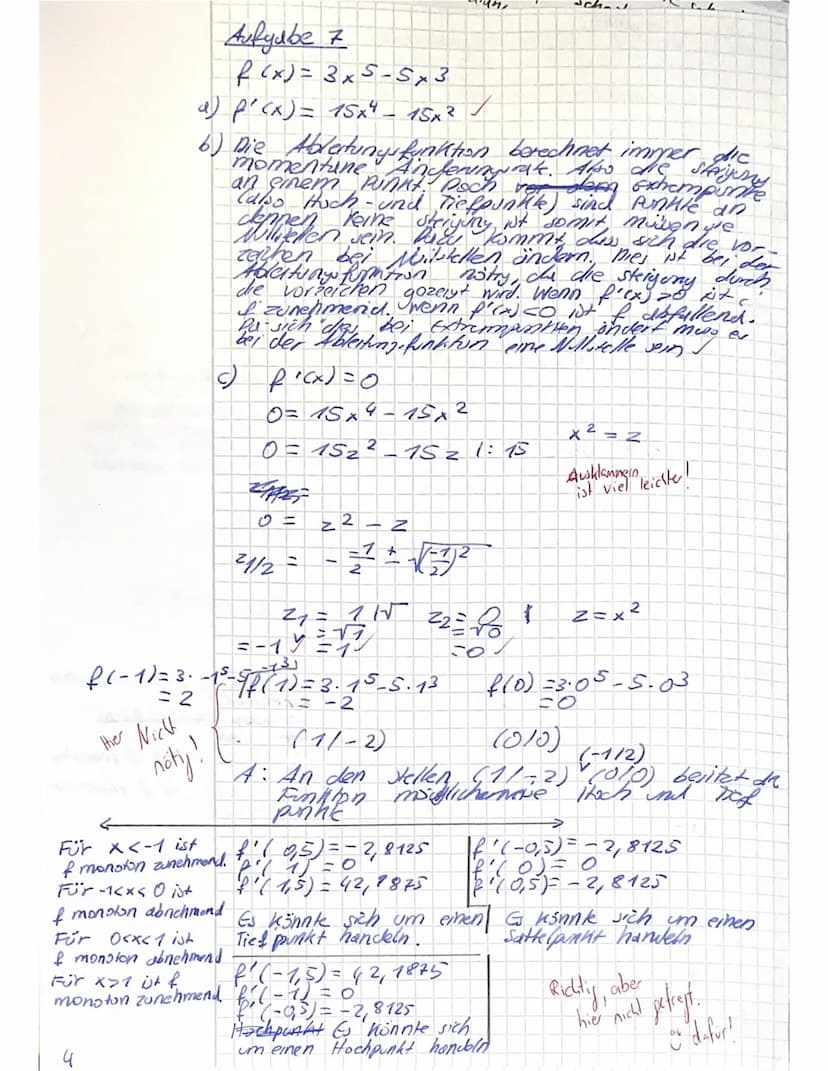 Aufgabe 7
f(x) = 3x^5 - 5x^3
a) f'(x) = 15x^4 - 15x^2 ✓
b) Die Ableitungsfunktion berechnet immer die
momentane Änderungsrate. Also die steigung
an einem Punkt. Doch Extrempunkte
(also Hoch- und Tiefpunkte) sind Punkte an
dennen keine steigung ist somit müssen sie
Nullstellen sein. Dazu kommt, dass sich die vor-
zeichen bei Nullstellen ändern. Dies ist bei der
Ableitungsfunktion nötig, da die steigung durch
die vorzeichen gezeigt wird. Wenn f'(x)>0 ist,
f zunehmend. wenn f'(x)<0 ist f abfallend.
Da sich das bei Extrempunkten ändert muss es
bei der Ableitungsfunktion eine Nullstelle sein ✓
c) f'(x) = 0
0 = 15x^4 - 15x^2
x^2 = z
0 = 15z^2 - 15z |: 15
Ausklammern
ist viel leichter!
0 = z^2 - z
z1/2 = - -1/2 ± √(-1/2)^2
z1 = 1 |√ z2 = 0 z = x^2
= √1 = √0
= -1 ✓ = 1 ✓ = 0 ✓
f(-1) = 3 · -1^5 - 5 · -1^3 f(1) = 3 · 1^5 - 5 · 1^3 f(0) = 3 · 0^5 - 5 · 0^3
= 2 = -2 = 0
Hier Nicht
nötig!
(1/-2) (0/0)
(-1/2)
A: An den stellen (1/-2) (0/0) besitzt die
Funktion möglicherweise Hoch und Tief
punkte
Für x < -1 ist
f monoton zunehmend.
Für -1<x<0 ist
f monoton abnehmend
Für 0<x<1 ist
f monoton abnehmend
Für x>1 ist f
monoton zunehmend.
f'(0,5) = -2,8125
f'(1) = 0
f'(1,5) = 42,1875
Es könnte sich um einen
Tiefpunkt handeln.
f'(-0,5) = -2,8125
f'(0) = 0
f'(0,5) = -2,8125
Es könnte sich um einen
Sattelpunkt handeln
f'(-1,5) = 42,1875
f'(-1) = 0
f'(-0,5) = -2,8125
Hochpunkt Es könnte sich
um einen Hochpunkt handeln
Richtig, aber
hier nicht gefragt.
dafür!
4